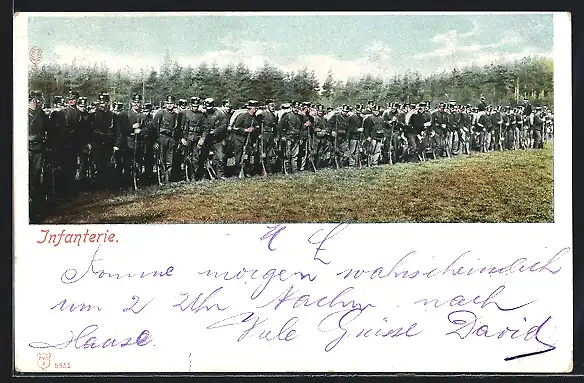 Infanterie.
M L
Komme morgen wahrscheinlich
um 2 Uhr Nachm. nach
Hause.
Viele Grüsse David
5955